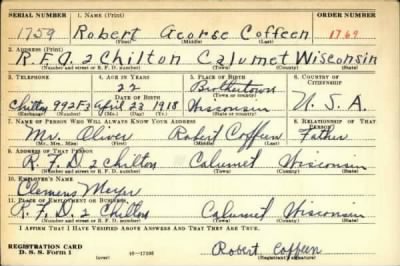 SERIAL NUMBER 1. NAME (Print) ORDER NUMBER
1759 Robert George Coffeen 1769
(First) (Middle) (Last)
2. ADDRESS (Print)
R.F.D. 2 Chilton Calumet Wisconsin
(Number and street or R. F. D. number) (Town) (County) (State)
3. TELEPHONE 4. AGE IN YEARS 5. PLACE OF BIRTH 6. COUNTRY OF CITIZENSHIP
22 Brothertown
DATE OF BIRTH (Town or county)
992F3 April 23 1918 Wisconsin U.S.A.
(Exchange) (Number) (Mo.) (Day) (Yr.) (State or country)
7. NAME OF PERSON WHO WILL ALWAYS KNOW YOUR ADDRESS 8. RELATIONSHIP OF THAT PERSON
Mr. Oliver Robert Coffeen Father
(Mr., Mrs., Miss) (First) (Middle) (Last)
9. ADDRESS OF THAT PERSON
R.F.D. 2 Chilton Calumet Wisconsin
(Number and street or R. F. D. number) (Town) (County) (State)
10. EMPLOYER'S NAME
Clemens Meyer
11. PLACE OF EMPLOYMENT OR BUSINESS
R.F.D. 2 Chilton Calumet Wisconsin
(Number and street or R. F. D. number) (Town) (County) (State)
I AFFIRM THAT I HAVE VERIFIED ABOVE ANSWERS AND THAT THEY ARE TRUE.
REGISTRATION CARD Robert Coffeen
D. S. S. Form 1 (over) (Registrant's signature)